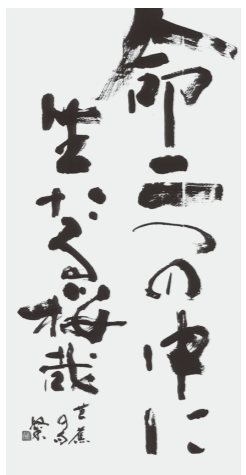 命二つの中に
生たる桜哉
芭蕉
の句